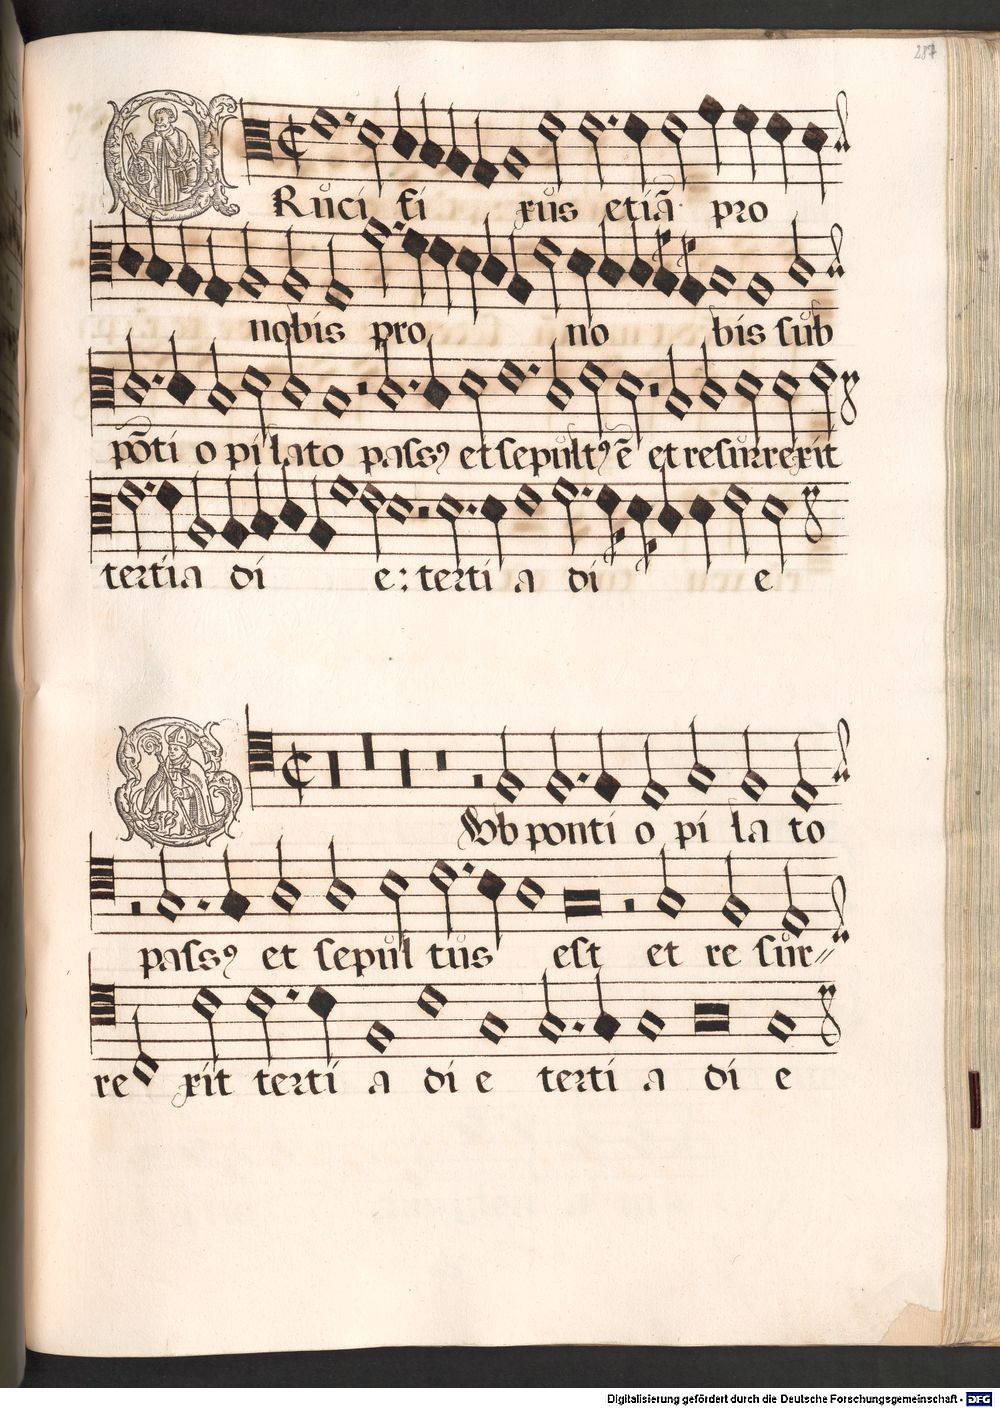 287
CRuci fi xus etiā pro
nobis pro no bis sub
pōti o pilato passꝰ et sepultꝰ ē et resurrexit
tertia di e: terti a di e
Sub ponti o pi la to
passꝰ et sepul tus est et re sur//
re xit terti a di e terti a di e
Digitalisierung gefördert durch die Deutsche Forschungsgemeinschaft - DFG